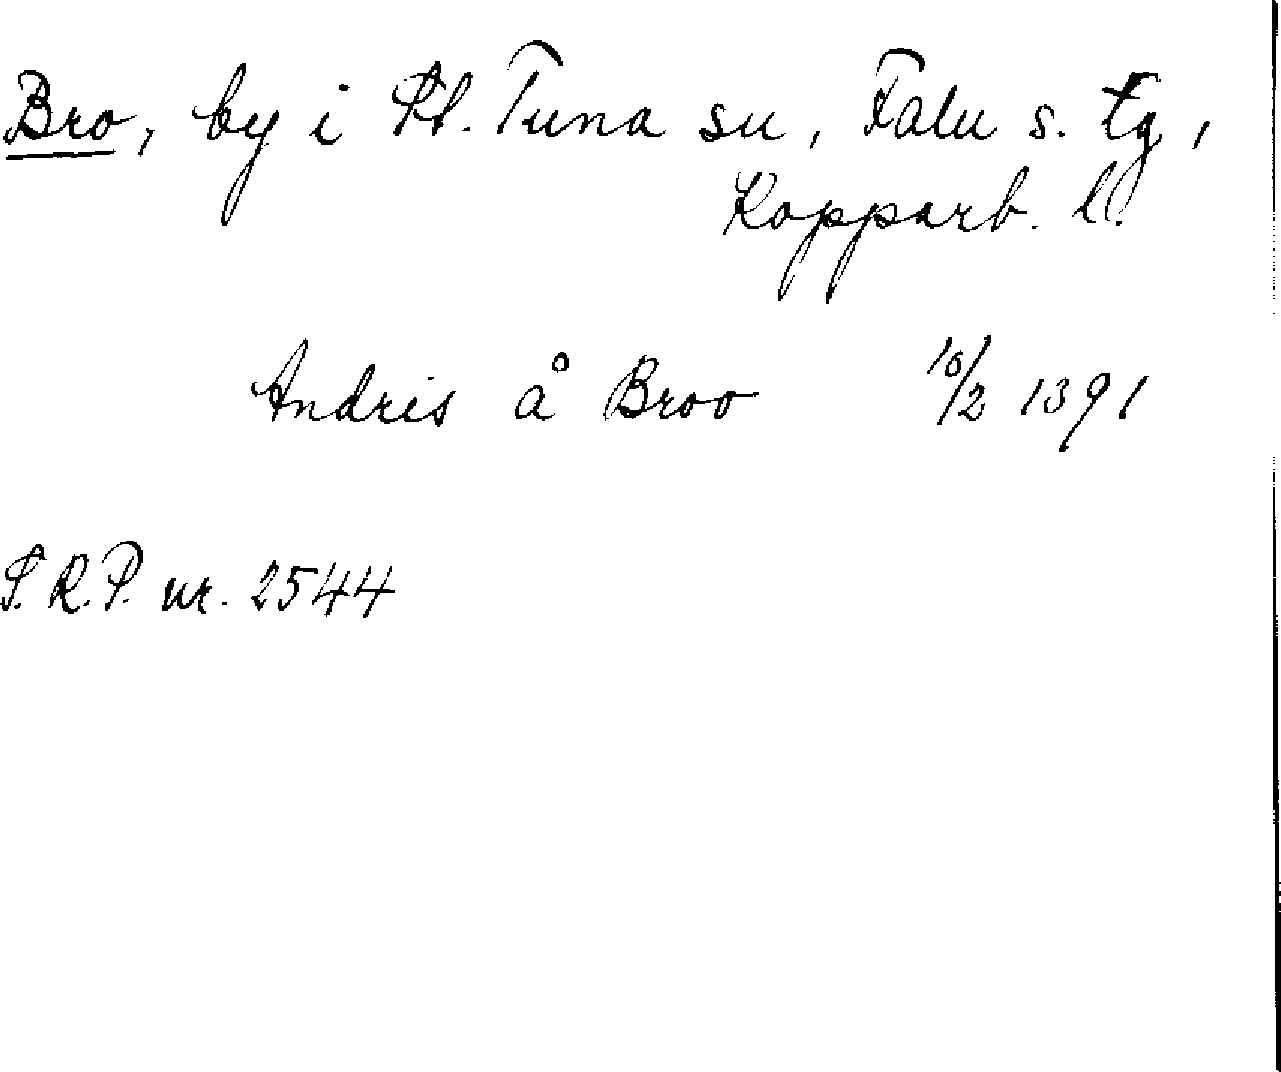 Bro, by i St. Tuna sn, Falu s. tg,
Kopparb. l.
Andris å Broo 10/2 1391
S.R.P. nr. 2544